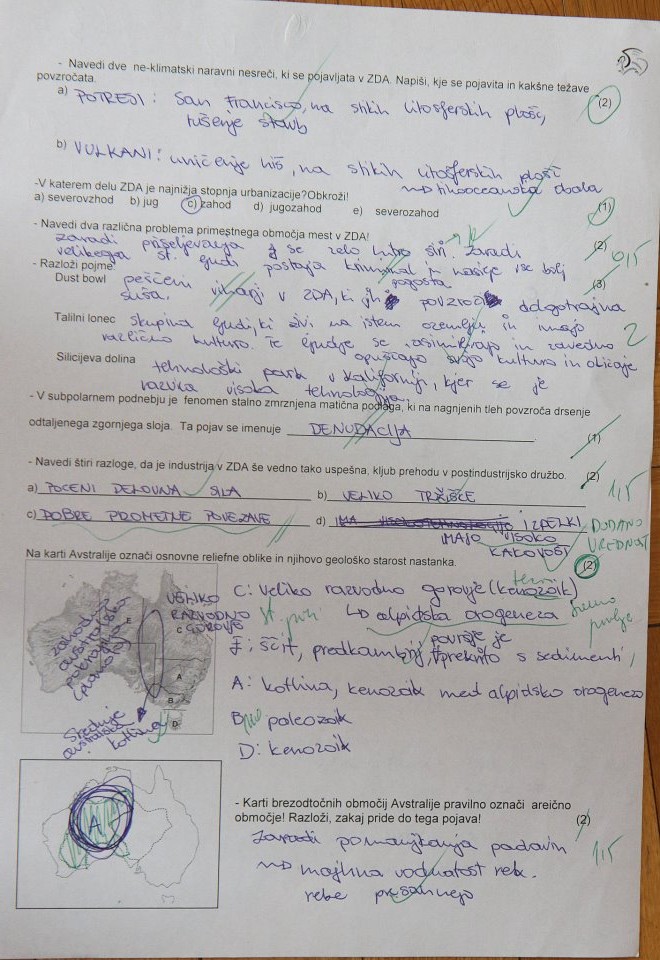 - Navedi dve ne-klimatski naravni nesreči, ki se pojavljata v ZDA. Napiši, kje se pojavita in kakšne težave
povzročata.
(2)
a) POTRESI: San Francisco, na stikih litosferskih plošč,
rušenje stavb
b) VULKANI: uničenje hiš, na stikih litosferskih plošč
tihooceanska obala
-V katerem delu ZDA je najnižja stopnja urbanizacije? Obkroži!
(1)
a) severovzhod b) jug c) zahod d) jugozahod e) severozahod
- Navedi dva različna problema primestnega območja mest v ZDA!
(2) 0,5
zaradi priseljevanja se zelo hitro širi. Zaradi
velikega št. ljudi postaja kriminal in nasilje vse bolj
pogosta
- Razloži pojme:
(3)
Dust bowl peščeni viharji v ZDA, ki jih povzroča dolgotrajna
suša.
Talilni lonec skupina ljudi, ki živi na istem ozemlju in imajo
različno kulturo. Te ljudje se asimilirajo in zavedno
opuščajo svojo kulturo in običaje
2
Silicijeva dolina tehnološki park v Kaliforniji, kjer se je
razvila visoka tehnologija.
- V subpolarnem podnebju je fenomen stalno zmrznjena matična podlaga, ki na nagnjenih tleh povzroča drsenje
odtaljenega zgornjega sloja. Ta pojav se imenuje DENUDACIJA.
(1)
- Navedi štiri razloge, da je industrija v ZDA še vedno tako uspešna, kljub prehodu v postindustrijsko družbo.
(2) 1,5
a) POCENI DELOVNA SILA b) VELIKO TRŽIŠČE
c) DOBRE PROMETNE POVEZAVE d) IZDELKI
IMAJO VISOKO
KAKOVOST
DODANO
VREDNOST
Na karti Avstralije označi osnovne reliefne oblike in njihovo geološko starost nastanka.
(2)
VELIKO
RAZVODNO
GOROVJE
E
C
A
B
D
Srednje
avstralska
kotlina
C: Veliko razvodno gorovje (kenozoik)
alpidska orogeneza
E: ščit, predkambrij, površje je
prekrito s sedimenti
A: kotlina, kenozoik med alpidsko orogenezo
B: paleozoik
D: kenozoik
A
- Karti brezodtočnih območij Avstralije pravilno označi areično
območje! Razloži, zakaj pride do tega pojava!
(2)
1,5
Zaradi pomanjkanja padavin
majhna vodnatost rek.
reke presahnejo